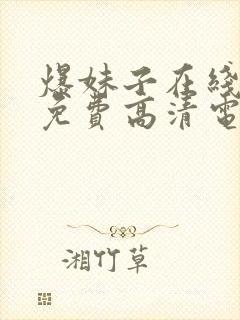 爆妹子在线
免费高清电
湘竹草